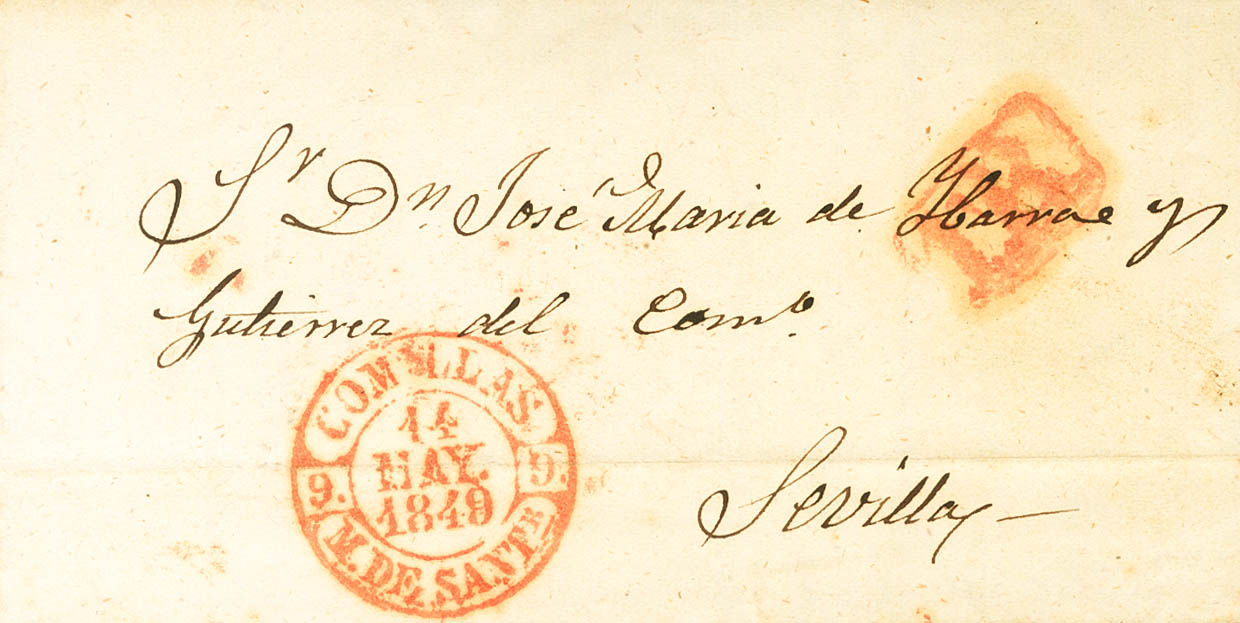 Sr. Dn. José Maria de Ybarra y
Gutierrez del Comº.
COMILLAS
14
MAY.
1849
9. 9.
M. DE SANTR
Sevilla